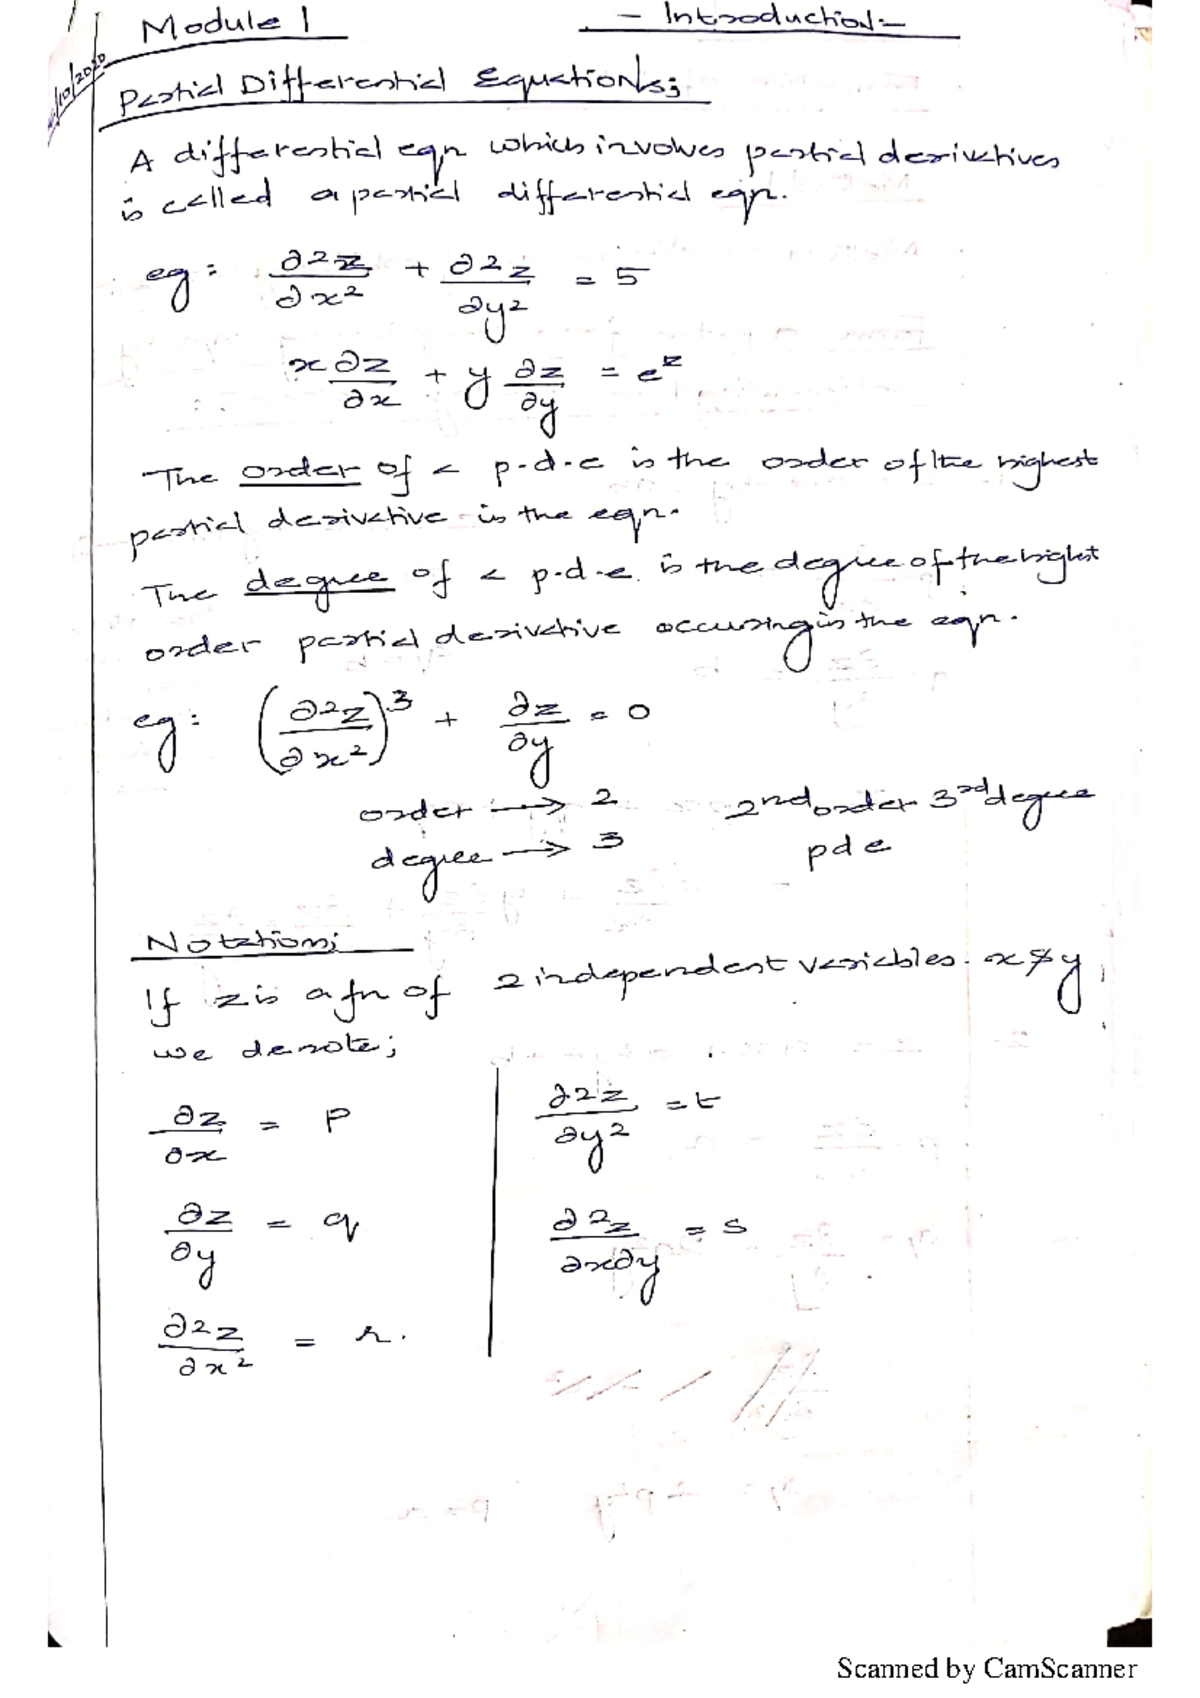 Module 1 - Introduction:-
/10/2020
Partial Differential Equations;
A differential eqn which involves partial derivatives
is called a partial differential eqn.
eg: ∂2z/∂x² + ∂2z/∂y² = 5
x∂z/∂x + y ∂z/∂y = e^z
The order of a p.d.e is the order of the highest
partial derivative is the eqn.
The degree of a p.d.e. is the degree of the highst
order partial derivative occuring is the eqn.
eg: (∂2z/∂x²)³ + ∂z/∂y = 0
order → 2 2nd order 3rd degree
degree → 3 pde
Notations;
If z is a fn of 2 independent variables. x & y,
we denote;
∂z/∂x = p ∂2z/∂y² = t
∂z/∂y = q ∂²z/∂x∂y = s
∂2z/∂x² = r.
Scanned by CamScanner